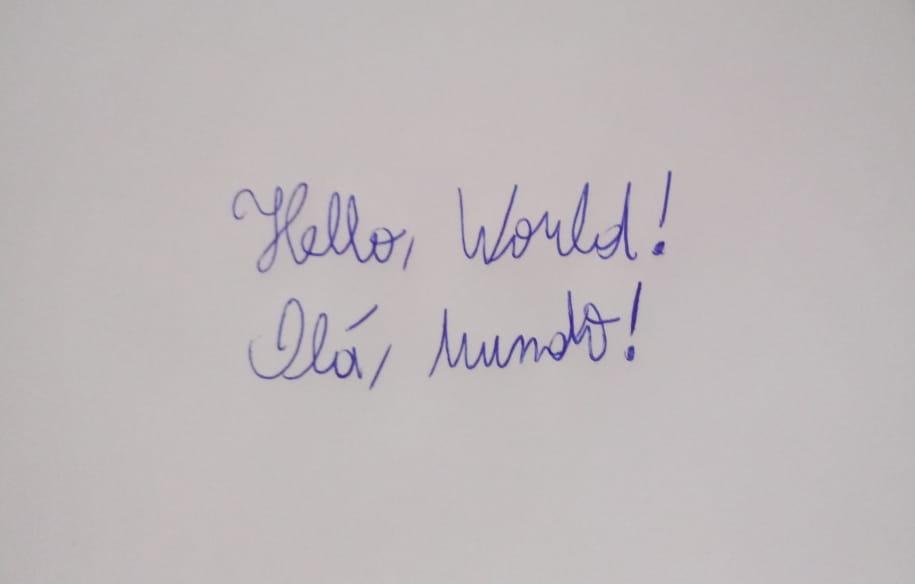 Hello, World!
Olá, Mundo!